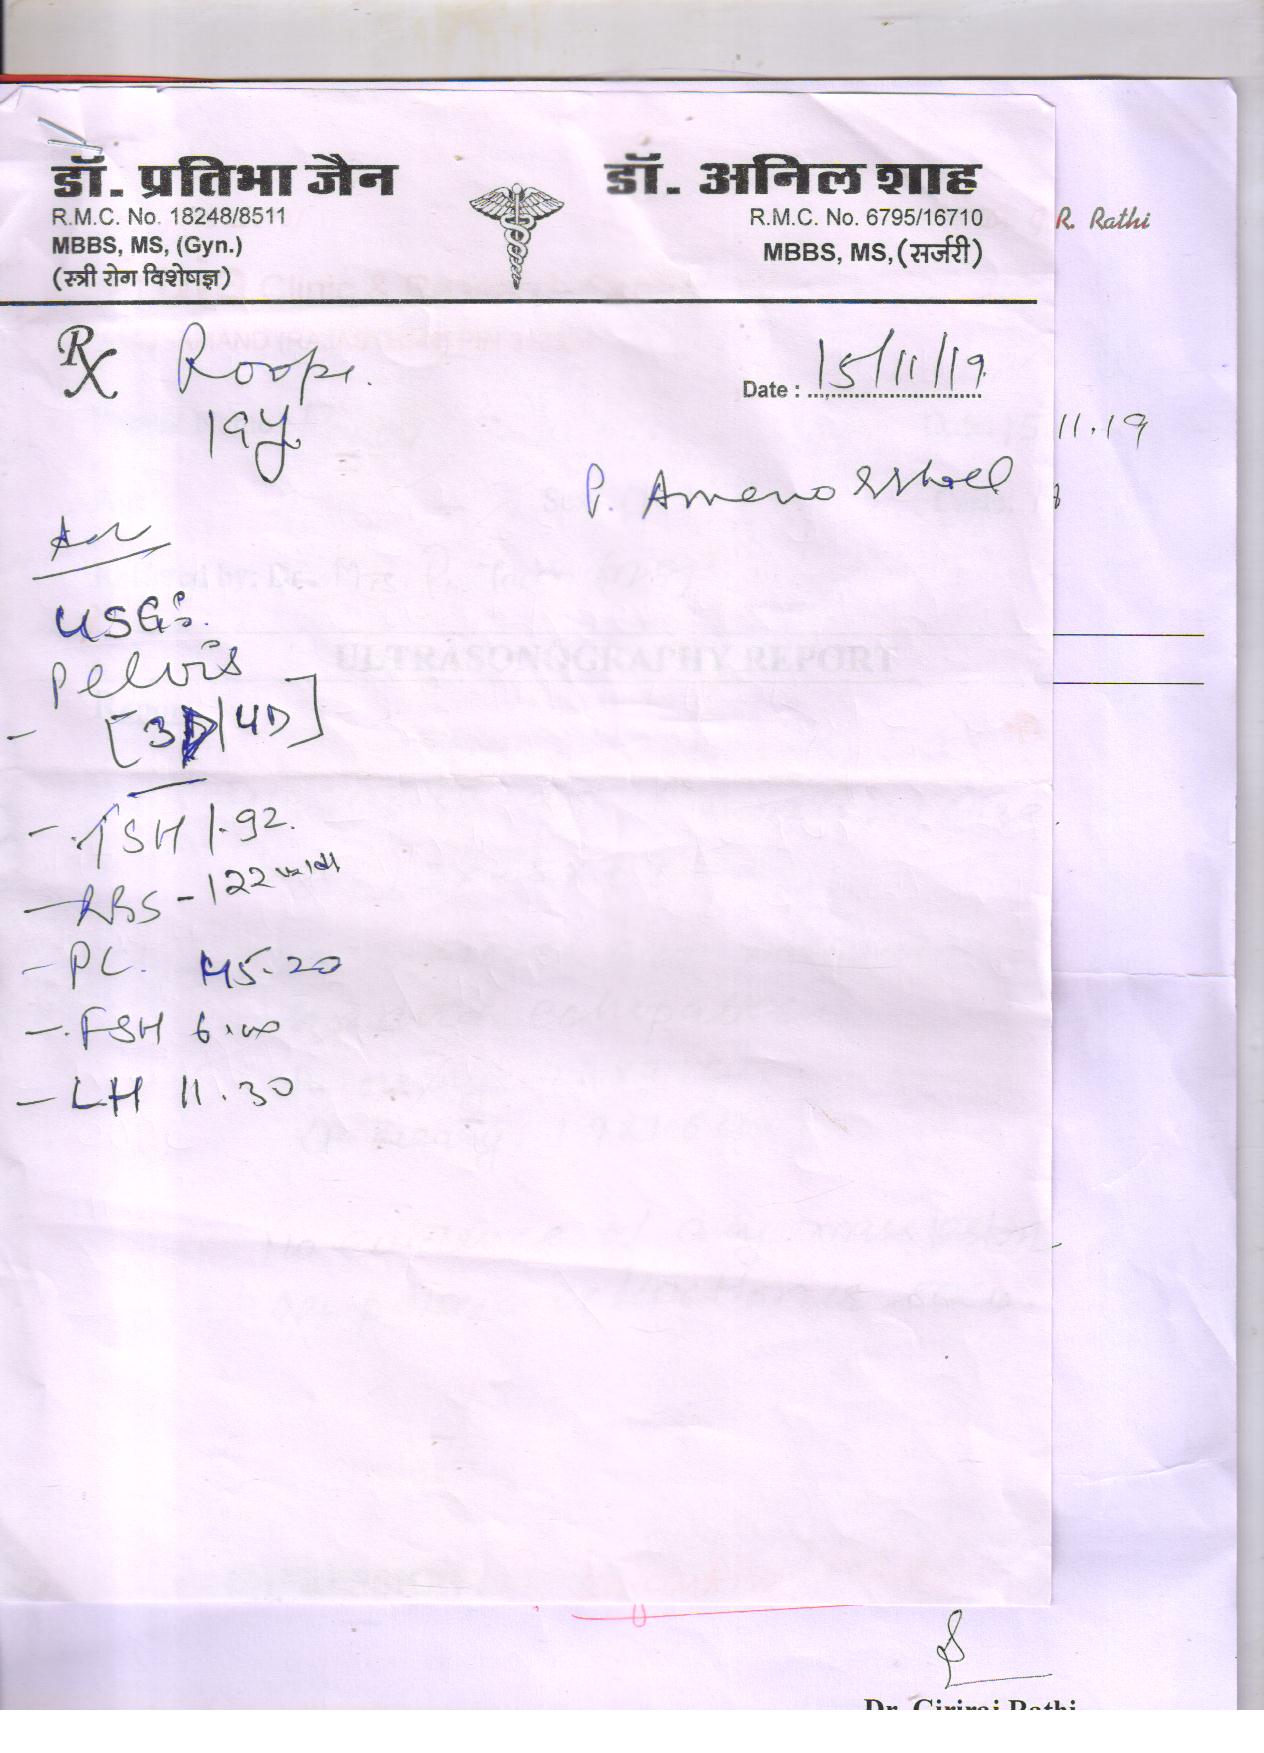 डॉ. प्रतिभा जैन
R.M.C. No. 18248/8511
MBBS, MS, (Gyn.)
(स्त्री रोग विशेषज्ञ)
डॉ. अनिल शाह
R.M.C. No. 6795/16710
MBBS, MS, (सर्जरी)
R. Rathi
Rx
Date : 15/11/19
19y
11.19
P. Ameno
Adv
USG
Pelvis
- [3D/4D]
- TSH 1.92
- RBS - 122
- PL. 45.20
- FSH 6.00
- LH 11.30
ULTRASONOGRAPHY REPORT
Dr. Giriraj Rathi